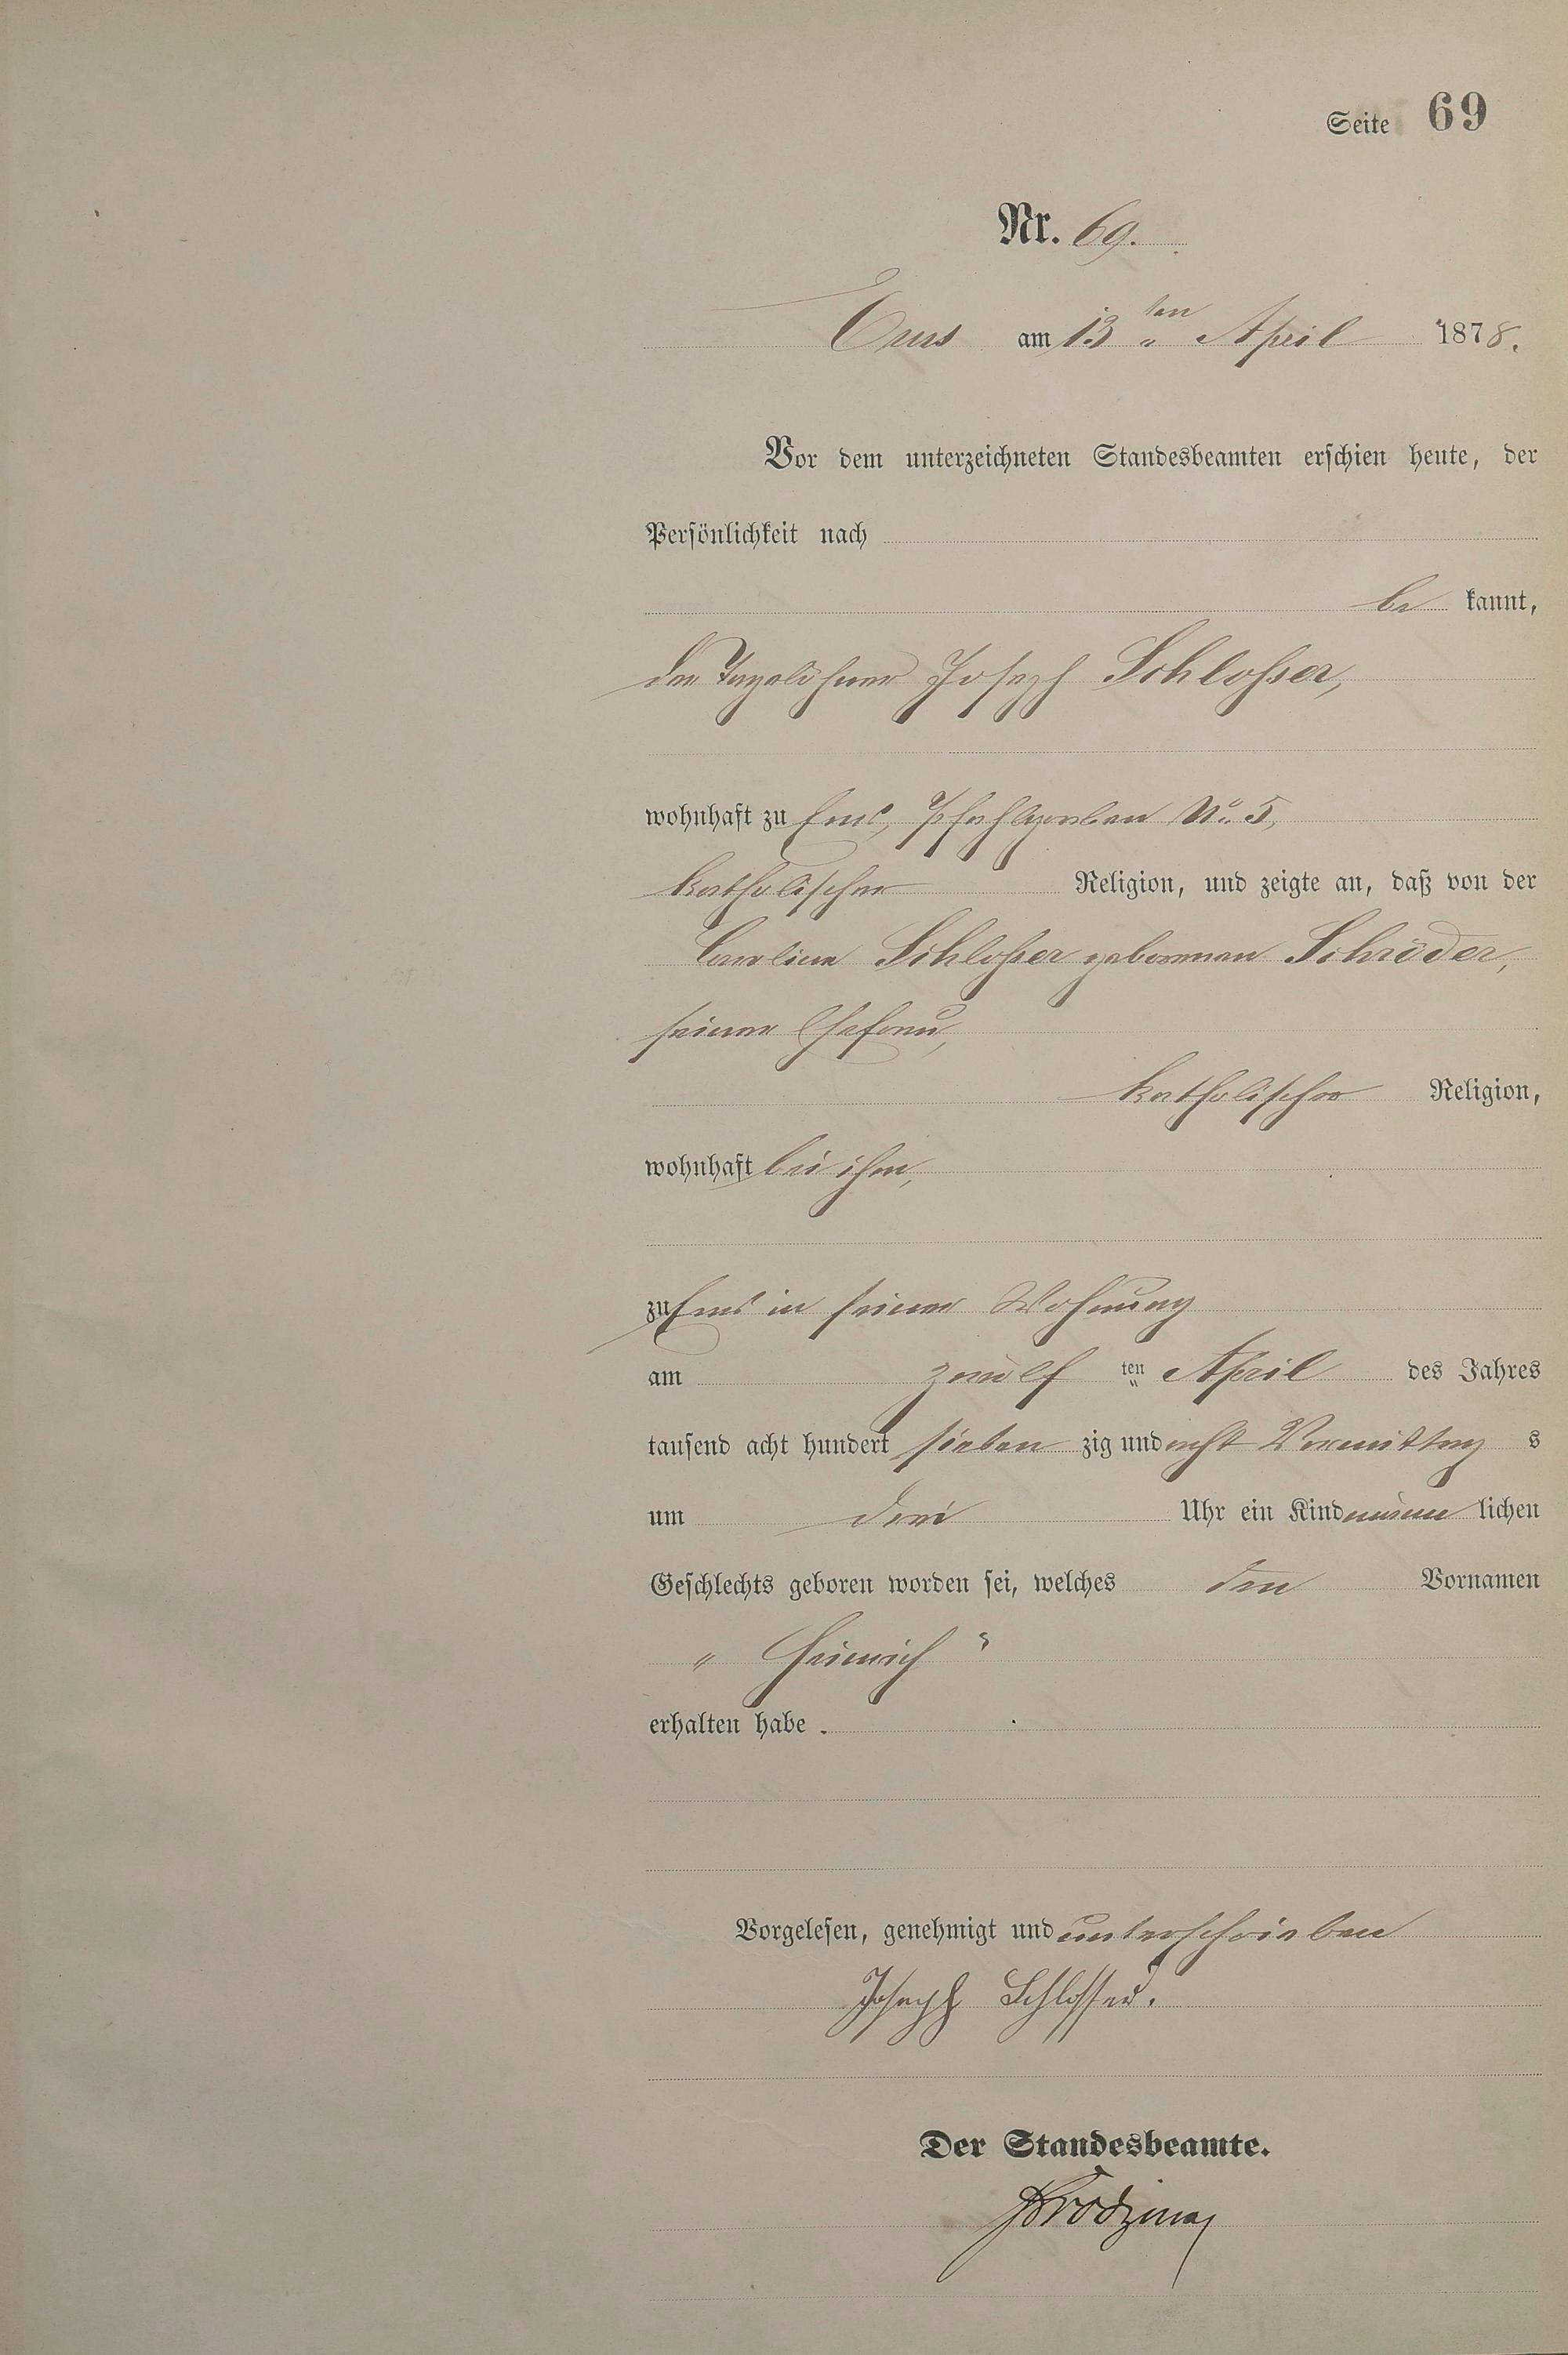 Seite 69
Nr. 69.
Ems am 13ten April 1878.
Vor dem unterzeichneten Standesbeamten erschien heute, der
Persönlichkeit nach
be kannt,
der Tagelöhner Joseph Schlosser,
wohnhaft zu Ems, Pfahlgraben No. 5,
katholischer Religion, und zeigte an, daß von der
Caroline Schlosser geborenen Schröder,
seiner Ehefrau,
katholischer Religion,
wohnhaft bei ihm,
zu Ems in seiner Wohnung
am zwölf ten April des Jahres
tausend acht hundert sieben zig und acht Vormittag s
um drei Uhr ein Kind männ lichen
Geschlechts geboren worden sei, welches den Vornamen
„Heinrich“
erhalten habe.
Vorgelesen, genehmigt und unterschrieben
Joseph Schlosser.
Der Standesbeamte.